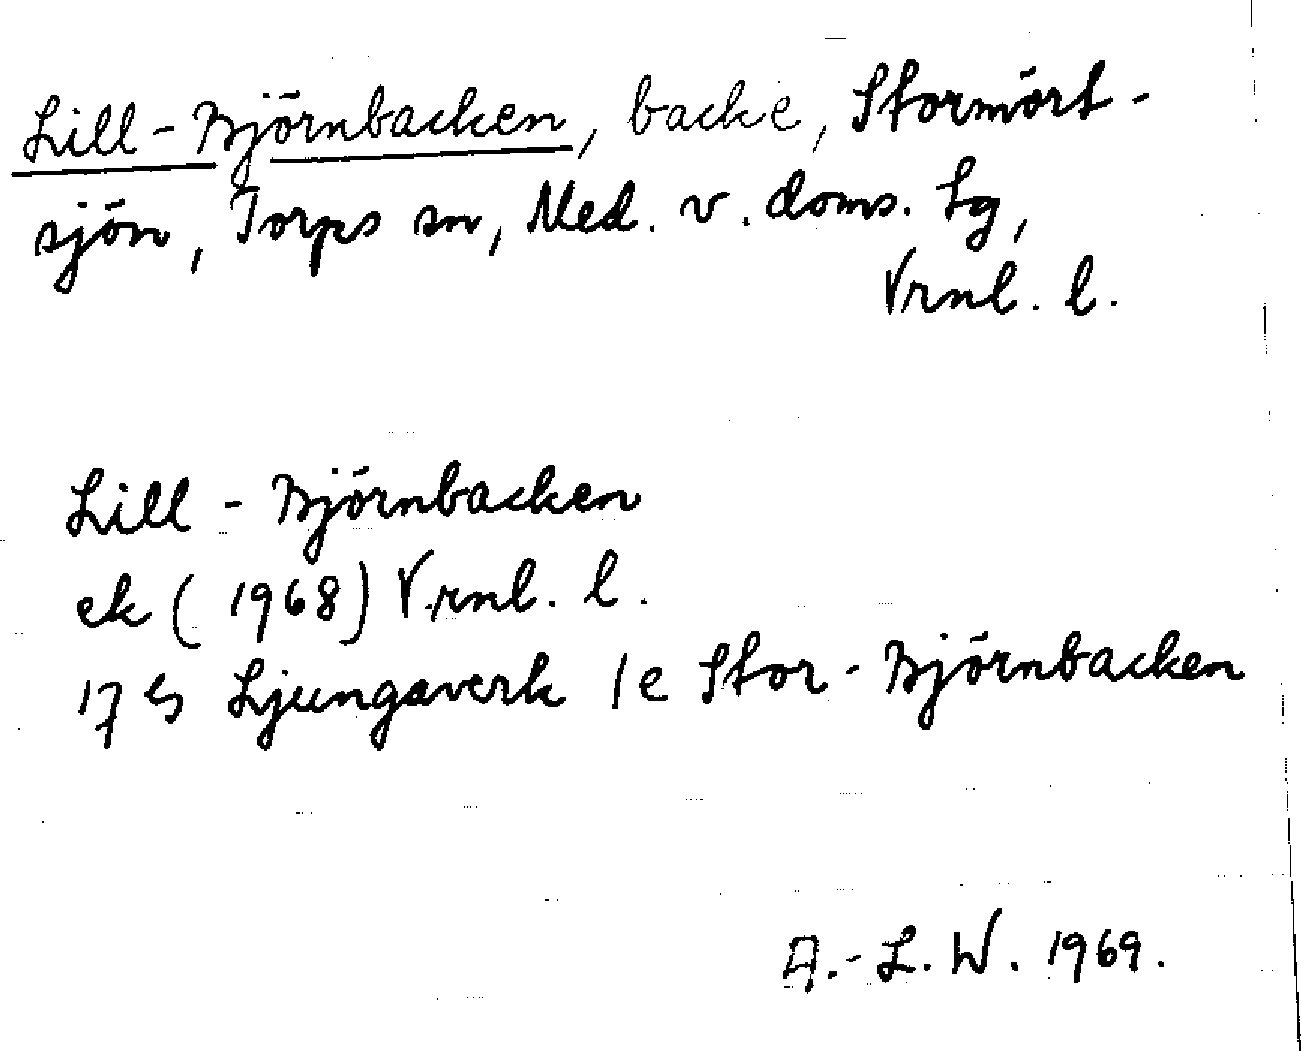 Lill-Björnbacken, backe, Stormört-
sjön, Torps sn, Med. v. doms. Lg,
Vrnl. l.
Lill-Björnbacken
ek (1968) Vrnl. l.
17 Ljungaverk 1e Stor-Björnbacken
A.-L. W. 1969.